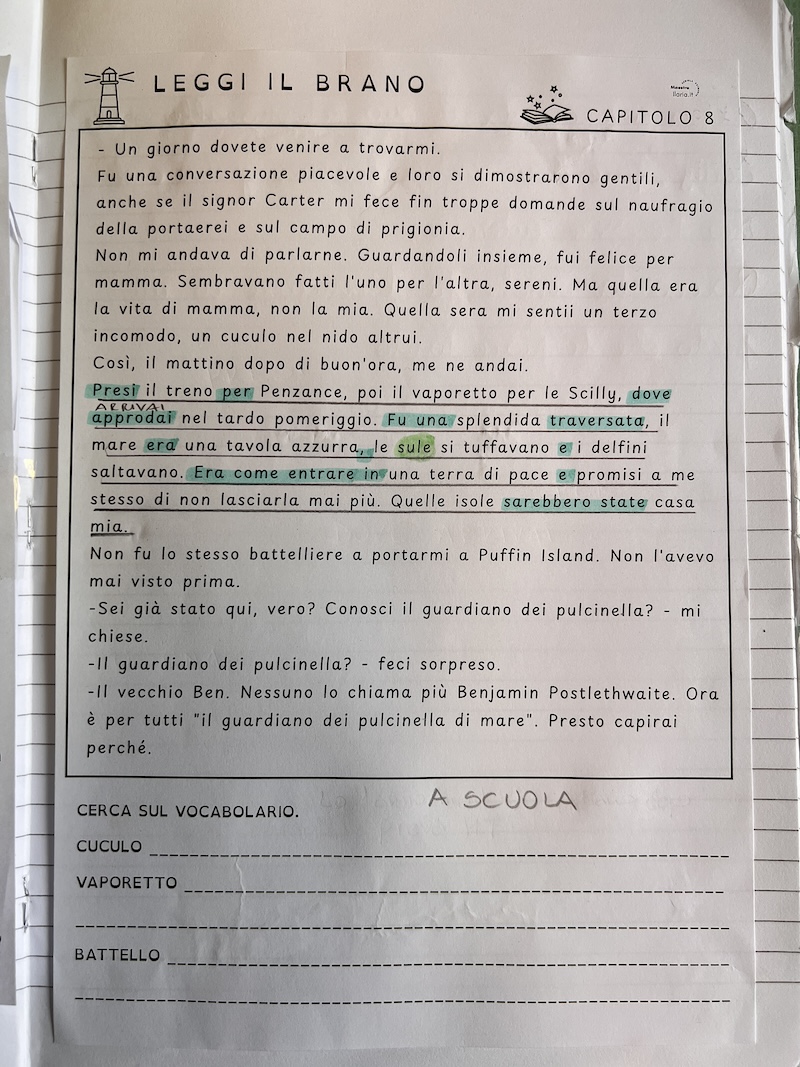 LEGGI IL BRANO
Maestra
Ilaria.it
CAPITOLO 8
- Un giorno dovete venire a trovarmi.
Fu una conversazione piacevole e loro si dimostrarono gentili,
anche se il signor Carter mi fece fin troppe domande sul naufragio
della portaerei e sul campo di prigionia.
Non mi andava di parlarne. Guardandoli insieme, fui felice per
mamma. Sembravano fatti l'uno per l'altra, sereni. Ma quella era
la vita di mamma, non la mia. Quella sera mi sentii un terzo
incomodo, un cuculo nel nido altrui.
Così, il mattino dopo di buon'ora, me ne andai.
Presi il treno per Penzance, poi il vaporetto per le Scilly, dove
ARRIVAI
approdai nel tardo pomeriggio. Fu una splendida traversata, il
mare era una tavola azzurra, le sule si tuffavano e i delfini
saltavano. Era come entrare in una terra di pace e promisi a me
stesso di non lasciarla mai più. Quelle isole sarebbero state casa
mia.
Non fu lo stesso battelliere a portarmi a Puffin Island. Non l'avevo
mai visto prima.
-Sei già stato qui, vero? Conosci il guardiano dei pulcinella? - mi
chiese.
-Il guardiano dei pulcinella? - feci sorpreso.
-Il vecchio Ben. Nessuno lo chiama più Benjamin Postlethwaite. Ora
è per tutti "il guardiano dei pulcinella di mare". Presto capirai
perché.
A SCUOLA
CERCA SUL VOCABOLARIO.
CUCULO
VAPORETTO
BATTELLO